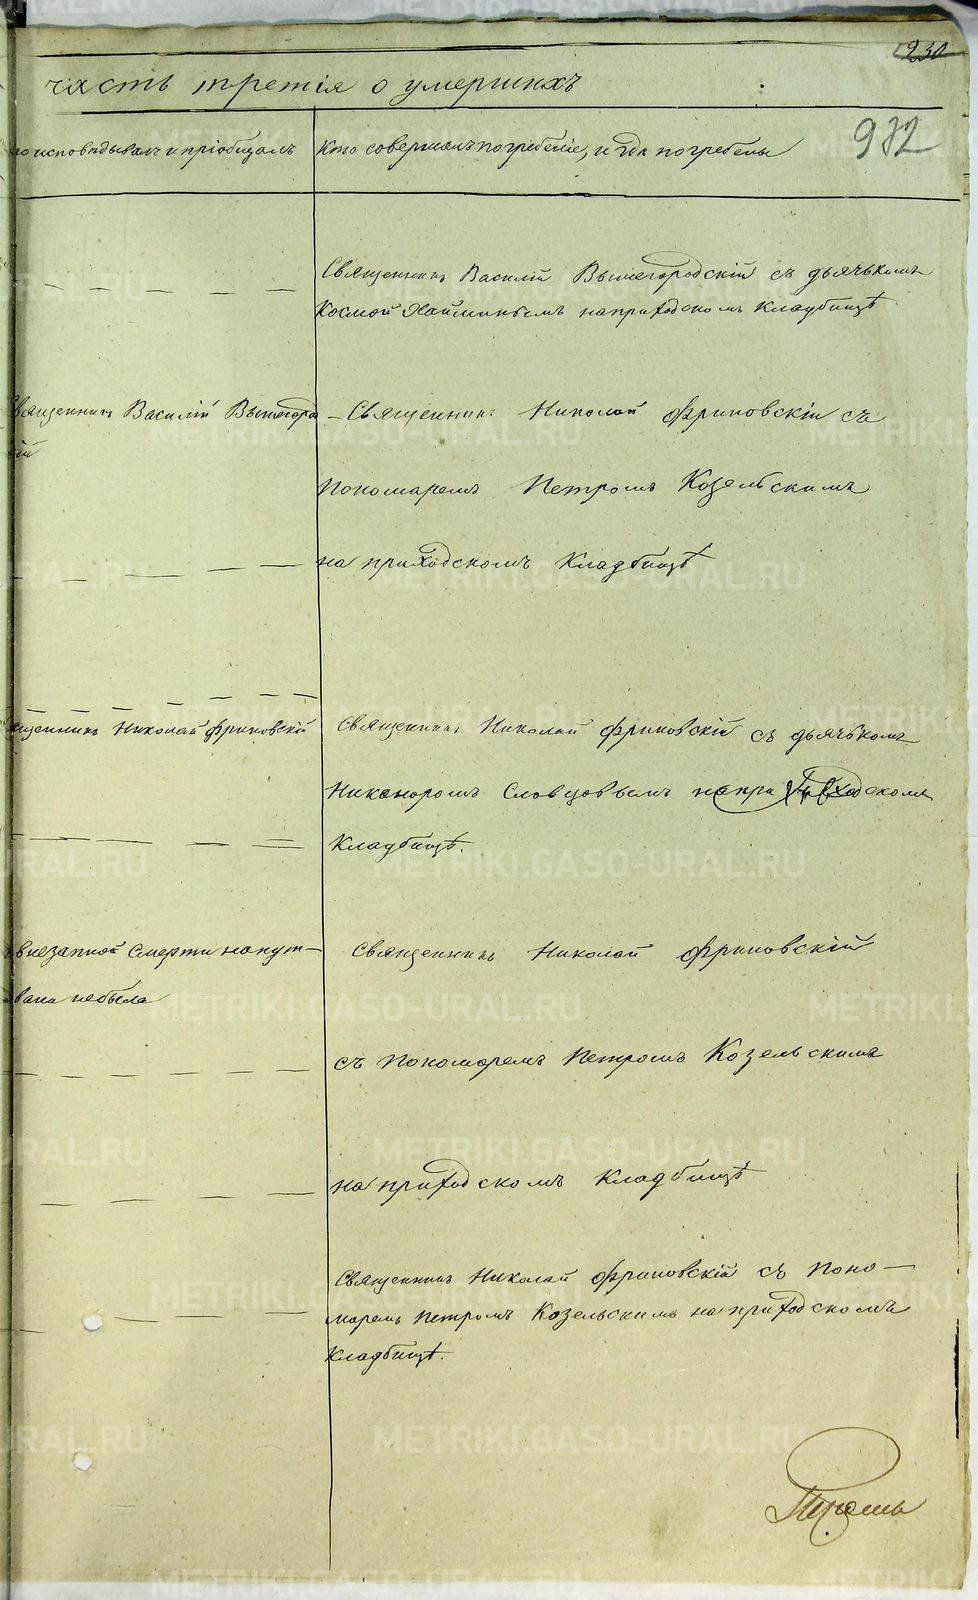 230
часть третія о умершихъ
932
то исповѣдывалъ и пріобщалъ
Кто совершалъ погребеніе, и гдѣ погребены
Священникъ Василій Вышегородскій съ дьячькомъ
Космой на приходскомъ Кладбищѣ
вященникъ Василій Вышегоро
кій
Священникъ Николай Фриновскій съ
Пономаремъ Петромъ Козельскимъ
на приходскомъ Кладбищѣ
ященникъ Николай Фриновскій
Священникъ Николай Фриновскій съ дьячькомъ
Никаноромъ Словцовымъ на приходскомъ
Кладбищѣ.
внезапной Смерти напут-
вана небыла
Священникъ Николай Фриновскій
съ Пономаремъ Петромъ Козельскимъ
на приходскомъ Кладбищѣ
Священникъ Николай Фриновскій съ Поно-
маремъ Петромъ Козельскимъ на приходскомъ
Кладбищѣ.
METRIKI.GASO-URAL.RU